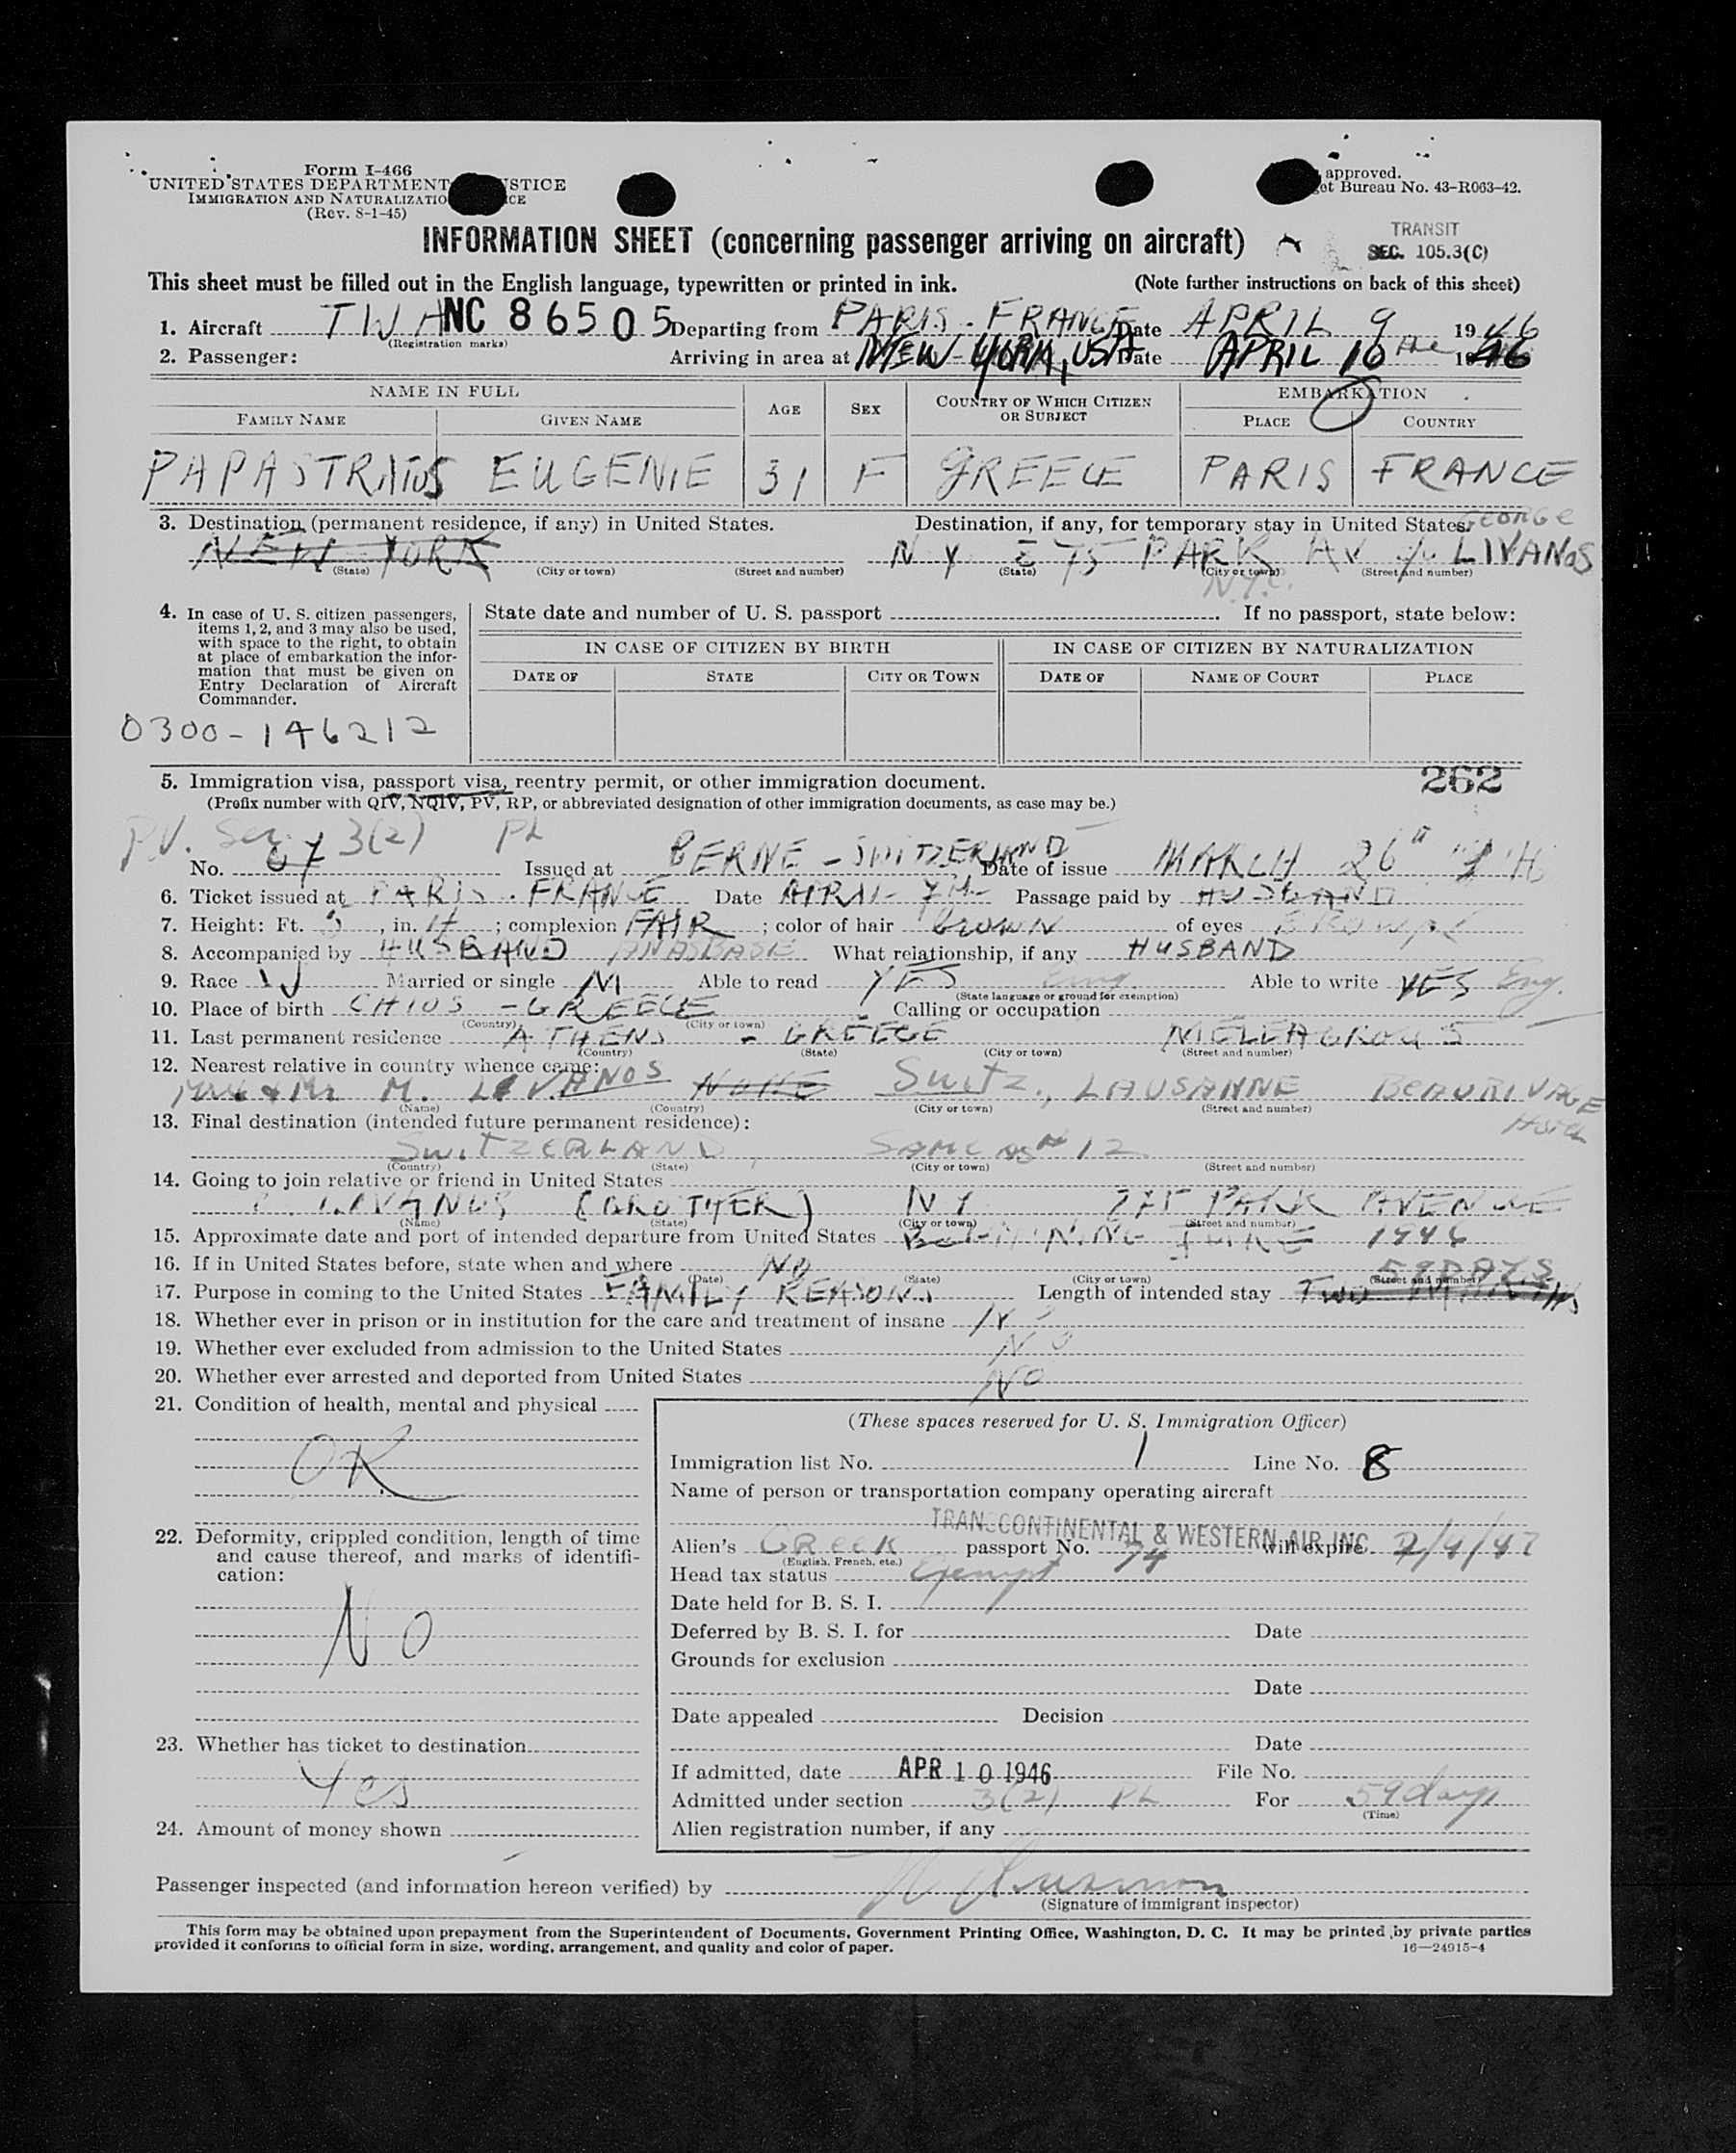 Form I-466
UNITED STATES DEPARTMENT STICE
IMMIGRATION AND NATURALIZATIO CE
(Rev. 8-1-45)
approved.
et Bureau No. 43-R063-42.
INFORMATION SHEET (concerning passenger arriving on aircraft)
TRANSIT
SEC. 105.3(C)
This sheet must be filled out in the English language, typewritten or printed in ink. (Note further instructions on back of this sheet)
1. Aircraft TWA NC 86505 Departing from PARIS - FRANCE Date APRIL 9 1946
(Registration marks)
2. Passenger: Arriving in area at NEW-YORK, USA Date APRIL 10 the 1946
NAME IN FULL AGE SEX COUNTRY OF WHICH CITIZEN OR SUBJECT EMBARKATION
FAMILY NAME GIVEN NAME PLACE COUNTRY
PAPASTRATOS EUGENIE 31 F GREECE PARIS FRANCE
3. Destination (permanent residence, if any) in United States. Destination, if any, for temporary stay in United States. GEORGE
NEW YORK N.Y. PARK AV LIVANOS
(State) (City or town) (Street and number) (State) (City or town) (Street and number)
N.Y.C.
4. In case of U. S. citizen passengers, items 1, 2, and 3 may also be used, with space to the right, to obtain at place of embarkation the information that must be given on Entry Declaration of Aircraft Commander.
State date and number of U. S. passport . If no passport, state below:
IN CASE OF CITIZEN BY BIRTH IN CASE OF CITIZEN BY NATURALIZATION
DATE OF STATE CITY OR TOWN DATE OF NAME OF COURT PLACE
0300-146212
5. Immigration visa, passport visa, reentry permit, or other immigration document. 262
(Prefix number with QIV, NQIV, PV, RP, or abbreviated designation of other immigration documents, as case may be.)
P.V. Sec. 3(2)
No. 67 Issued at BERNE - SWITZERLAND Date of issue MARCH 26
6. Ticket issued at PARIS - FRANCE Date APRIL Passage paid by HUSBAND
7. Height: Ft. 5, in. 4; complexion FAIR; color of hair brown of eyes BROWN
8. Accompanied by HUSBAND What relationship, if any HUSBAND
9. Race W Married or single M Able to read YES Eng Able to write YES Eng.
(State language or ground for exemption)
10. Place of birth CHIOS - GREECE Calling or occupation
(Country) (City or town)
11. Last permanent residence ATHENS - GREECE
(Country) (State) (City or town) (Street and number)
12. Nearest relative in country whence came:
M. LIVANOS NONE Switz., LAUSANNE BEAURIVAGE Hotel
(Name) (Country) (City or town) (Street and number)
13. Final destination (intended future permanent residence):
SWITZERLAND, SAME AS # 12
(Country) (State) (City or town) (Street and number)
14. Going to join relative or friend in United States
LIVANOS (BROTHER) NY 775 PARK AVENUE
(Name) (State) (City or town) (Street and number)
15. Approximate date and port of intended departure from United States BEGINNING JUNE 1946
16. If in United States before, state when and where NO
(Date) (State) (City or town) (Street and number)
59 DAYS
17. Purpose in coming to the United States FAMILY REASONS Length of intended stay TWO MONTHS
18. Whether ever in prison or in institution for the care and treatment of insane
19. Whether ever excluded from admission to the United States NO
20. Whether ever arrested and deported from United States NO
21. Condition of health, mental and physical
OK
22. Deformity, crippled condition, length of time and cause thereof, and marks of identification:
No
23. Whether has ticket to destination
Yes
24. Amount of money shown
(These spaces reserved for U. S. Immigration Officer)
Immigration list No. 1 Line No. 8
Name of person or transportation company operating aircraft
TRANSCONTINENTAL & WESTERN AIR INC.
Alien's GREEK passport No. 74 will expire 2/4/47
(English, French, etc.)
Head tax status Exempt
Date held for B. S. I.
Deferred by B. S. I. for Date
Grounds for exclusion
Date
Date appealed Decision
Date
If admitted, date APR 10 1946 File No.
Admitted under section 3(2) For 59 days
(Time)
Alien registration number, if any
Passenger inspected (and information hereon verified) by
(Signature of immigrant inspector)
This form may be obtained upon prepayment from the Superintendent of Documents, Government Printing Office, Washington, D. C. It may be printed by private parties
provided it conforms to official form in size, wording, arrangement, and quality and color of paper. 16—24915-4